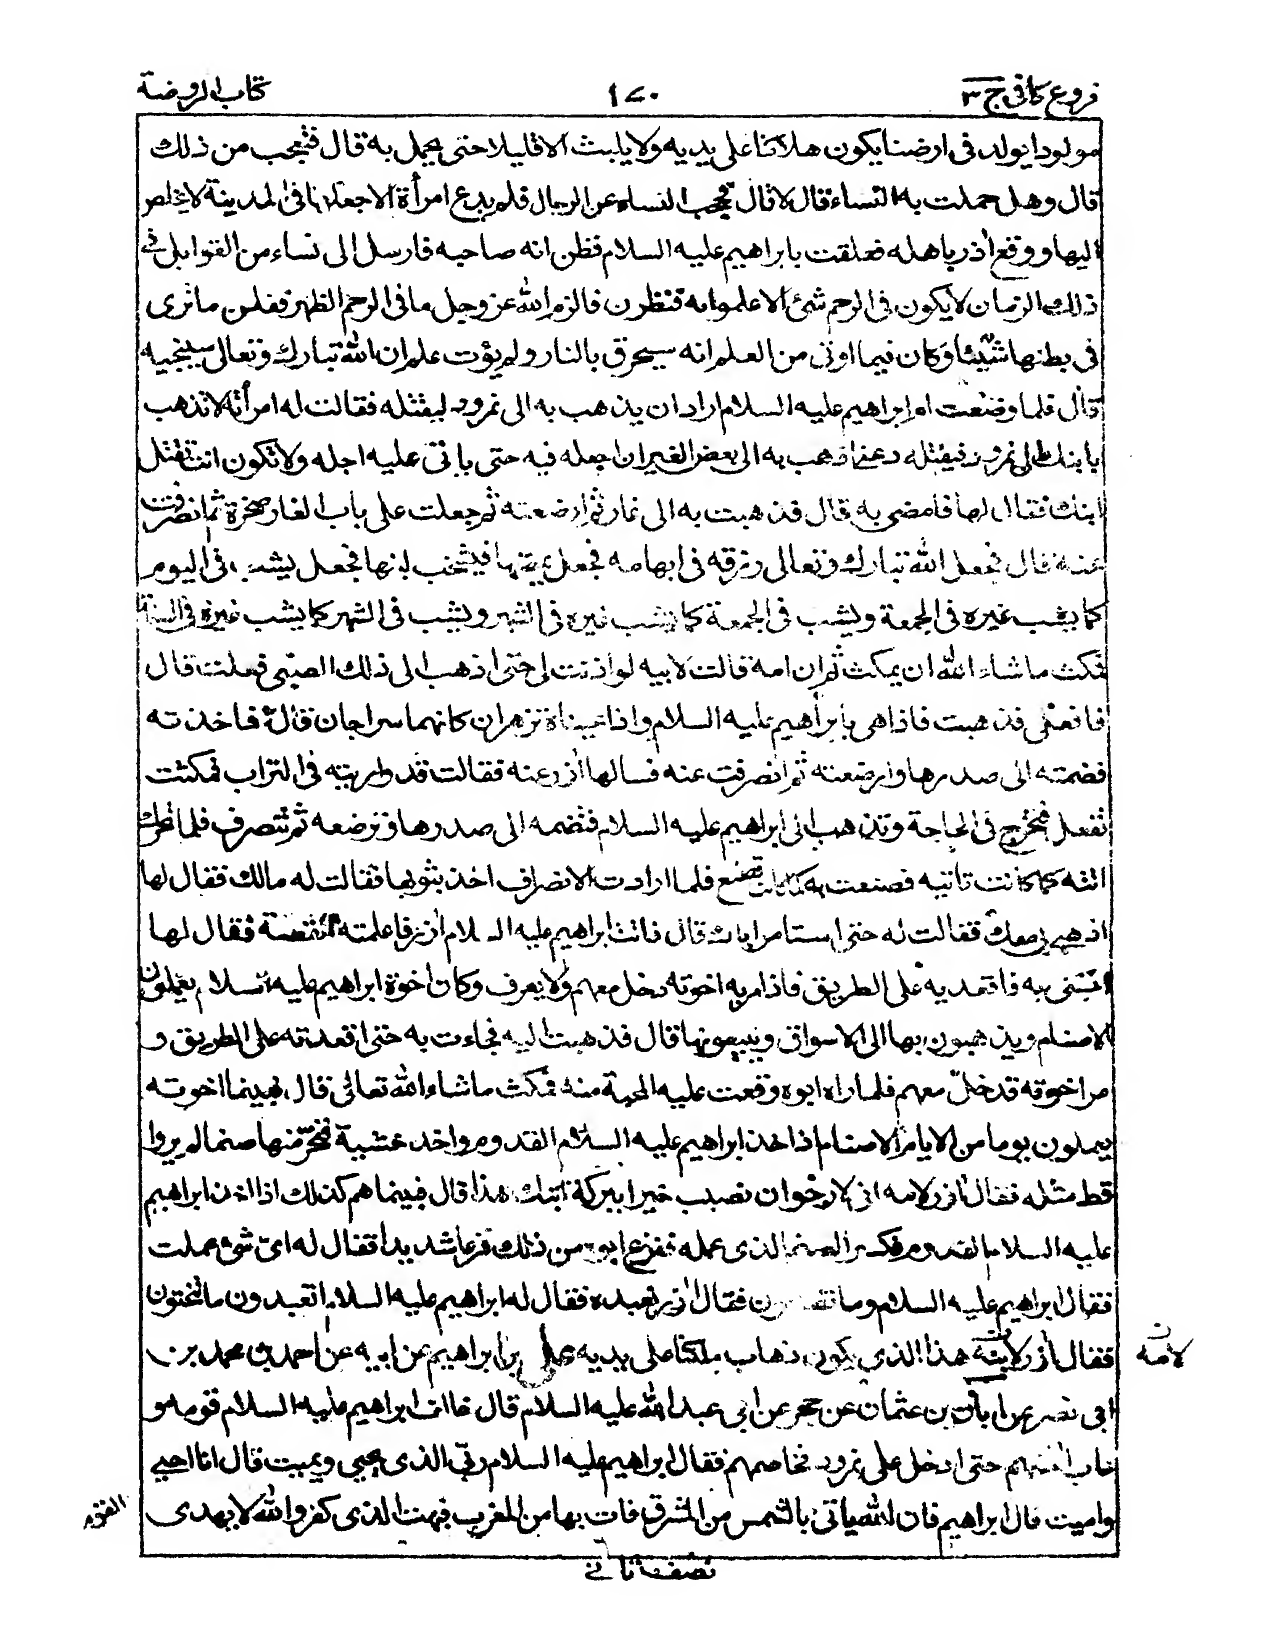 فروع كافى ج ٣ ١٧٠ كتاب الروضة
مولودا يولد فى ارضنا يكون هلاكنا على يديه ولا يلبث الا قليلا حتى يحمل به قال فتعجب من ذلك
قال وهل حملت به النساء فقال لا قال فحجب النساء عن الرجال فلم يدع امرأة الا جعلها فى المدينة لا يخلص
اليها ووقع آذر باهله فعلقت بابراهيم عليه السلام فظن انه صاحبه فارسل الى نساء من القوابل فى
ذلك الزمان لا يكون فى الرحم شئ الا علموا به فنظرن فالزم الله عز وجل ما فى الرحم الظهر فقلن ما نرى
فى بطنها شيئا وكان فيما اوتى من العلم انه سيحرق بالنار ولم يؤت علم ان الله تبارك وتعالى سينجيه
قال فلما وضعت ام ابراهيم عليه السلام اراد ان يذهب به الى نمرود ليقتله فقالت له امرأته لا تذهب
بابنك الى نمرود فيقتله دعنى اذهب به الى بعض الغيران اجعله فيه حتى ياتى عليه اجله ولا تكون انت تقتل
ابنك فقال لها فامضى به قال فذهبت به الى غار ثم ارضعته ثم جعلت على باب الغار صخرة ثم انصرفت
عنه قال فجعل الله تبارك وتعالى رزقه فى ابهامه فجعل يمصها فيشخب لبنها فجعل يشب فى اليوم
كما يشب غيره فى الجمعة ويشب فى الجمعة كما يشب غيره فى الشهر ويشب فى الشهر كما يشب غيره فى السنة
فمكث ما شاء الله ان يمكث ثم ان امه قالت لابيه لو اذنت لى حتى اذهب الى ذلك الصبى فعلت قال
فافعلى فذهبت فاذا هى بابراهيم عليه السلام واذا عيناه تزهران كانهما سراجان قال فاخذته
فضمته الى صدرها وارضعته ثم انصرفت عنه فسالها آذر عنه فقالت قد واريته فى التراب فمكثت
تفعل فتخرج فى الحاجة وتذهب الى ابراهيم عليه السلام فتضمه الى صدرها وترضعه ثم تنصرف فلما تحرك
اتته كما كانت تاتيه فصنعت به كما كانت تصنع فلما ارادت الانصراف اخذ بثوبها فقالت له مالك فقال لها
اذهبى بى معك فقالت له حتى استامر اباك قال فاتت ام ابراهيم عليه السلام آذر فاعلمته القصة فقال لها
ايتينى به فاقعديه على الطريق فاذا مر به اخوته دخل معهم ولا يعرف وكان اخوة ابراهيم عليه السلام يعملون
الاصنام ويذهبون بها الى الاسواق ويبيعونها قال فذهبت اليه فجاءت به حتى اقعدته على الطريق و
مر اخوته فدخل معهم فلما راه ابوه وقعت عليه المحبة منه فمكث ما شاء الله تعالى قال فبينما اخوته
يعملون يوما من الايام الاصنام اذا اخذ ابراهيم عليه السلام القدوم واخذ خشبة فنجر منها صنما لم يروا
قط مثله فقال آذر لامه انى لارجو ان نصيب خيرا ببركة ابنك هذا قال فبينما هم كذلك اذا اخذ ابراهيم
عليه السلام القدوم فكسر الصنم الذى عمله ففزع ابوه من ذلك فزعا شديدا فقال له اى شئ عملت
فقال ابراهيم عليه السلام وما تصنعون فقال آذر نعبده فقال له ابراهيم عليه السلام اتعبدون ما تنحتون
فقال آذر لابنه هذا الذى يكون ذهاب ملكنا على يديه على بن ابراهيم عن ابيه عن احمد بن محمد بن
لامه ن
ابى نصر عن ابان بن عثمان عن حجر عن ابى عبد الله عليه السلام قال خالف ابراهيم عليه السلام قومه و
عاب الهتهم حتى ادخل على نمرود فخاصمهم فقال ابراهيم عليه السلام ربى الذى يحيى ويميت قال انا احيى
واميت قال ابراهيم فان الله ياتى بالشمس من المشرق فات بها من المغرب فبهت الذى كفر والله لا يهدى
القوم
نصف ثانى